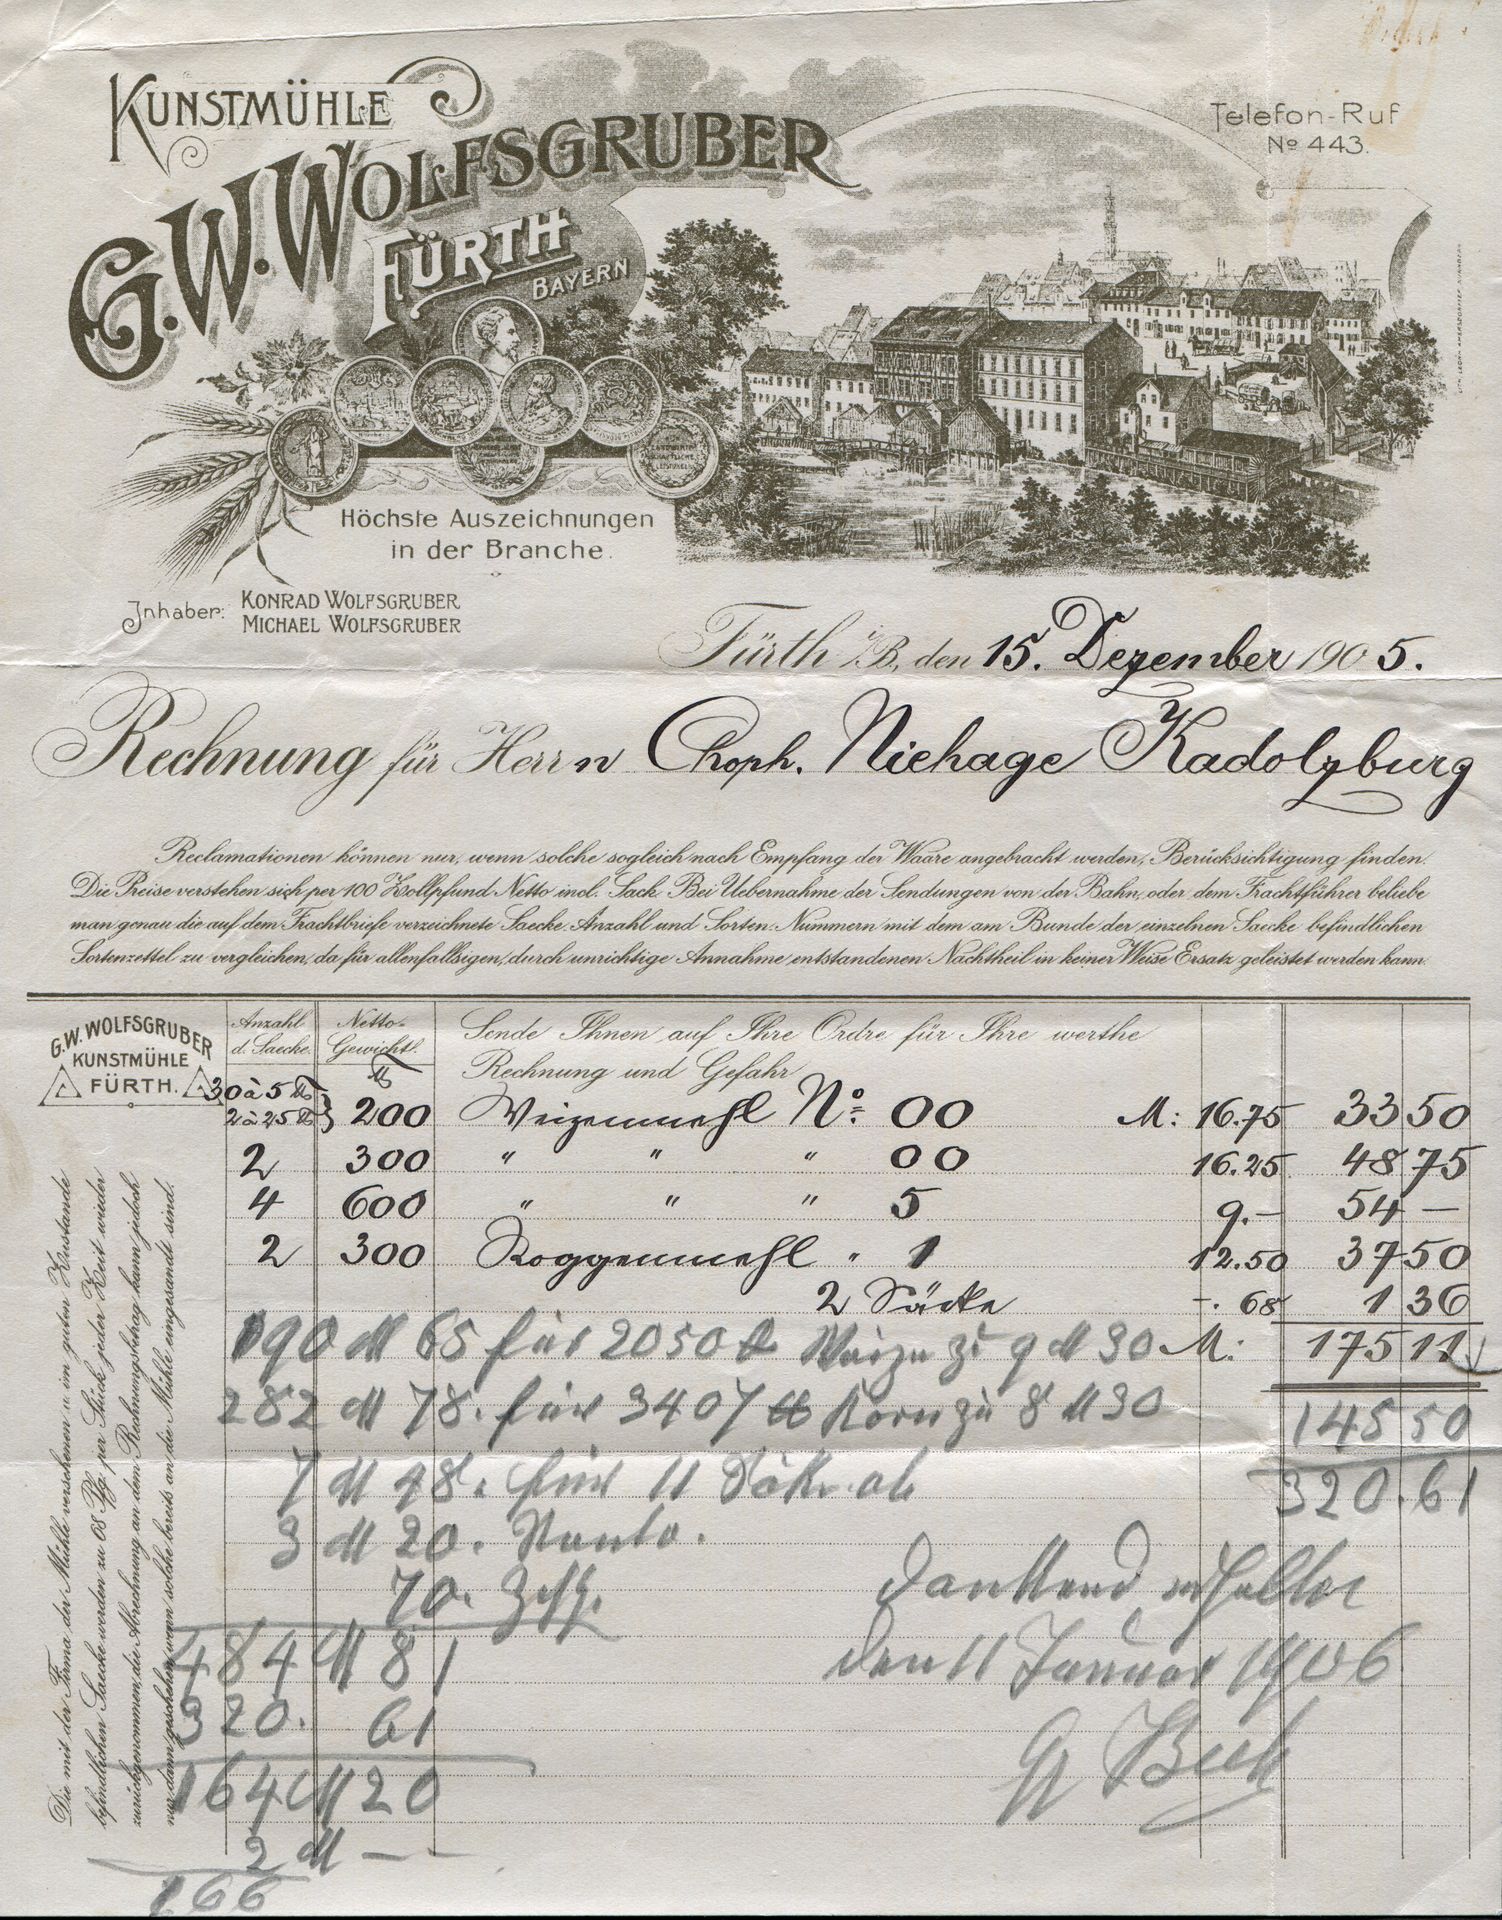 KUNSTMÜHLE
G.W. WOLFSGRUBER
FÜRTH
BAYERN
Telefon-Ruf
No 443.
LANDWIRTH
SCHAFTLICHE
LEISTUNGEN
Höchste Auszeichnungen
in der Branche.
Inhaber: KONRAD WOLFSGRUBER
MICHAEL WOLFSGRUBER
Fürth i/B., den 15. Dezember 1905.
Rechnung für Herrn Choph. Niehage Kadolzburg
Reclamationen können nur, wenn solche sogleich nach Empfang der Waare angebracht werden, Berücksichtigung finden.
Die Preise verstehen sich per 100 Zollpfund Netto incl. Sack. Bei Uebernahme der Sendungen von der Bahn, oder dem Frachtführer beliebe
man genau die auf dem Frachtbriefe verzeichnete Saecke-Anzahl und Sorten-Nummern mit dem am Bunde der einzelnen Saecke befindlichen
Sortenzettel zu vergleichen, da für allenfallsigen, durch unrichtige Annahme entstandenen Nachtheil in keiner Weise Ersatz geleistet werden kann.
G.W. WOLFSGRUBER
KUNSTMÜHLE
FÜRTH.
Anzahl d. Saecke
Netto-Gewicht
Sende Ihnen auf Ihre Ordre für Ihre werthe
Rechnung und Gefahr
30 à 5 ℔
2 à 25 ℔ } 200 Weizenmehl No: 00 M: 16.75 33 50
2 300 " " " 00 16.25 48 75
4 600 " " " 5 9.– 54 –
2 300 Roggenmehl " 1 12.50 37 50
2 Säcke –.68 1 36
M: 175 11
190 M 65 für 2050 ℔ Weizn zu 9 M 30
282 M 78. für 3407 ℔ Korn zu 8 M 30
145 50
7 M 48. für 11 Säke ab
320.61
3 M 20. Konto.
70.
484 M 81
320. 61
164 M 20
2 M – –
166
Dankend erhalten
den 11 Januar 1906
Beck
Die mit der Firma der Mühle versehenen u. im guten Zustande
befindlichen Saecke werden zu 68 Pfg. per Stück jeder Zeit wieder
zurückgenommen, die Abrechnung an dem Rechnungsbetrag kann jedoch
nur dann geschehen, wenn solche bereits an die Mühle eingesandt sind.